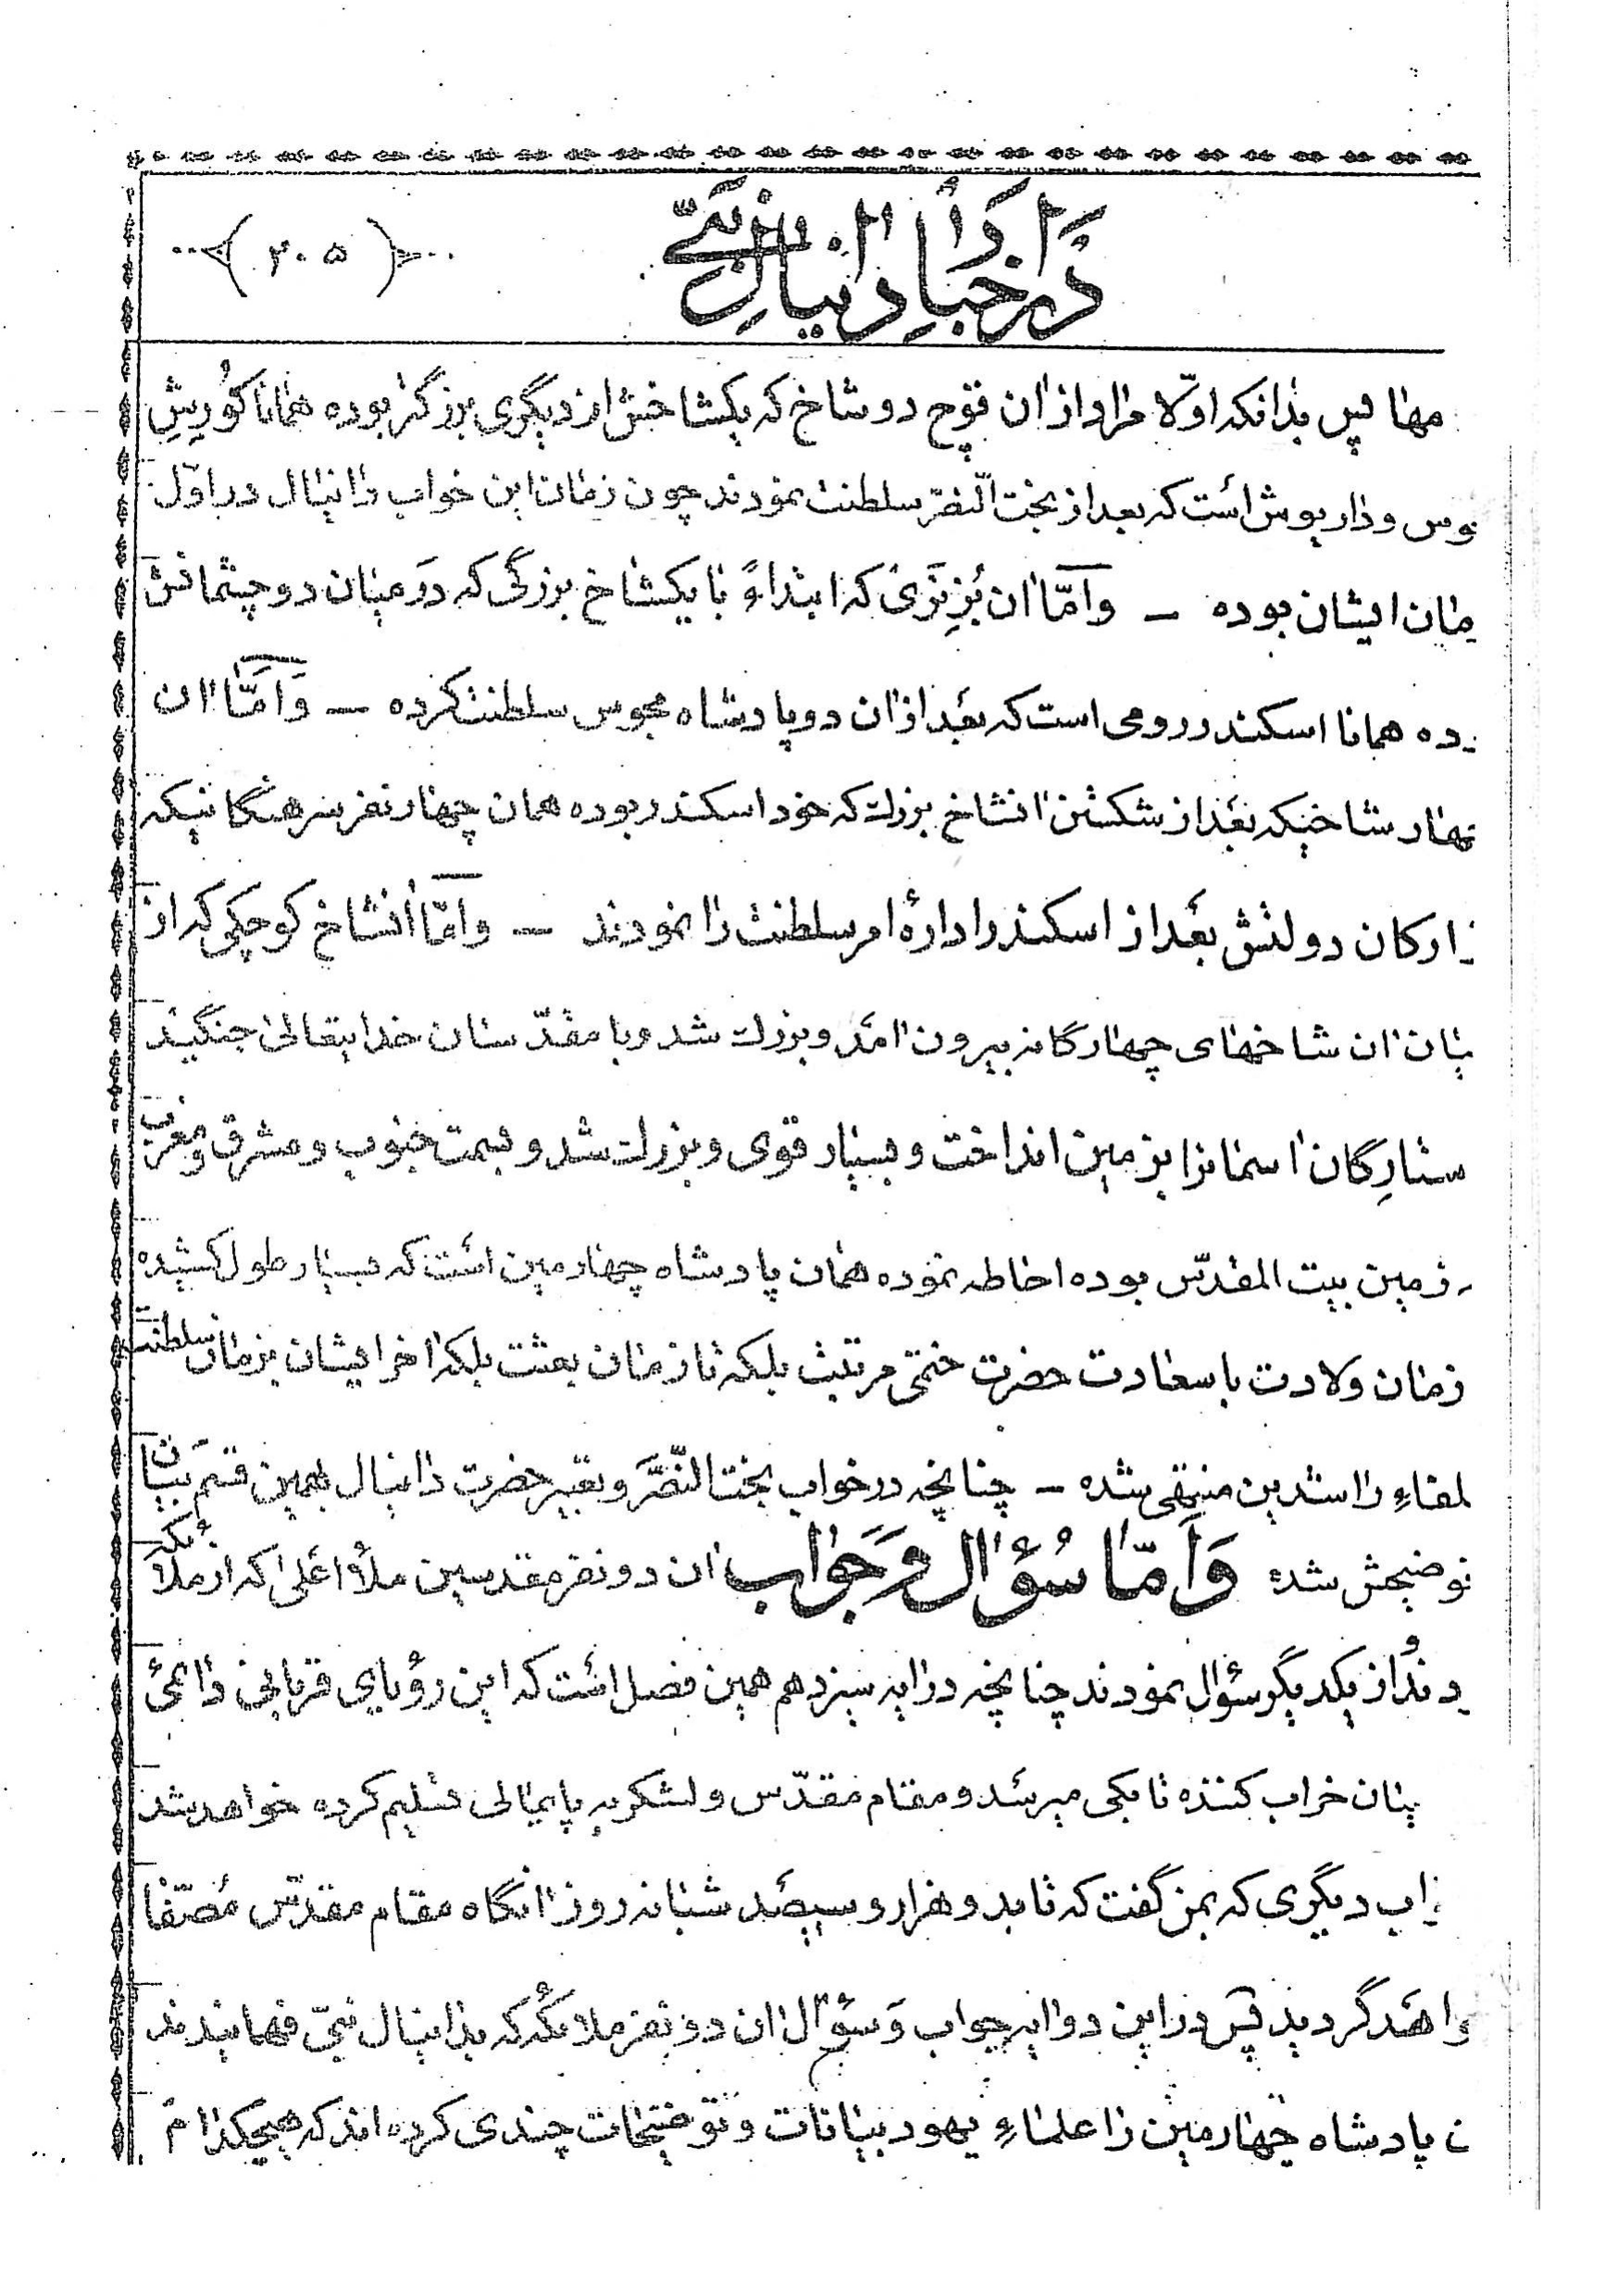 در اخبار دانیال نبی
(۲۰۵)
مها پس بدانکه اوّلا مراد از ان قوچ دو شاخ که یکشاخش از دیگری بزرگتر بوده همانا کُورِشِ
وس و داریوش است که بعد از بخت النّصّر سلطنت نمودند چون زمان این خواب دانیال در اوّل
مان ایشان بوده – وَامّا ان بُزِ نَری که ابتداءً با یکشاخ بزرگی که در میان دو چشمانش
ده همانا اسکندر رومی است که بعد از ان دو پادشاه مجوس سلطنت کرده – وَامَّا ان
هار شاخیکه بعد از شکستن انشاخ بزرك که خود اسکندر بوده همان چهار نفر سرهنگانیکه
ارکان دولتش بعد از اسکندر ادارهٔ امر سلطنت را نمودند – وامّا انشاخ کوچکی که از
یان ان شاخهای چهارگانه بیرون امد و بزرك شد و با مقدّسان خدایتعالی جنگید
ستارِگان اسمانرا بزمین انداخت و بسیار قوی و بزرك شد و بسمت جنوب و مشرق و مغرب
زمین بیت المقدّس بوده احاطه نموده همان پادشاه چهارمین است که بسیار طول کشیده
زمان ولادت با سعادت حضرت ختمی مرتبت بلکه تا زمان بعثت بلکه اخر ایشان بزمان سلطنت
لفاءِ راشدین منتهی شده – چنانچه در خواب بخت النّصَّر و تعبیر حضرت دانیال بهمین قسم بیان
توضیحش شده وَاَمّا سُؤال وَ جَواب ان دو نفر مقدسین ملأ اعلی که از ملائکه
دند از یکدیگر سؤال نمودند چنانچه در ایه سیزدهم همین فصل است که این رؤیای قربانی دائمی
یان خراب کننده تا بکی میرسد و مقام مقدّس و لشکر به پایمالی تسلیم کرده خواهد شد
اب دیگری که بمن گفت که تا بدو هزار و سیصد شبانه روز انگاه مقام مقدّس مُصَفّا
واهَد گردید پس در این دو ایه جواب وَ سؤال ان دو نفر ملائکه که بدانیال نبیّ فهمانیدند
ن پادشاه چهارمین را علماءِ یهود بیانات و توضیحات چندی کرده اند که هیچکدام